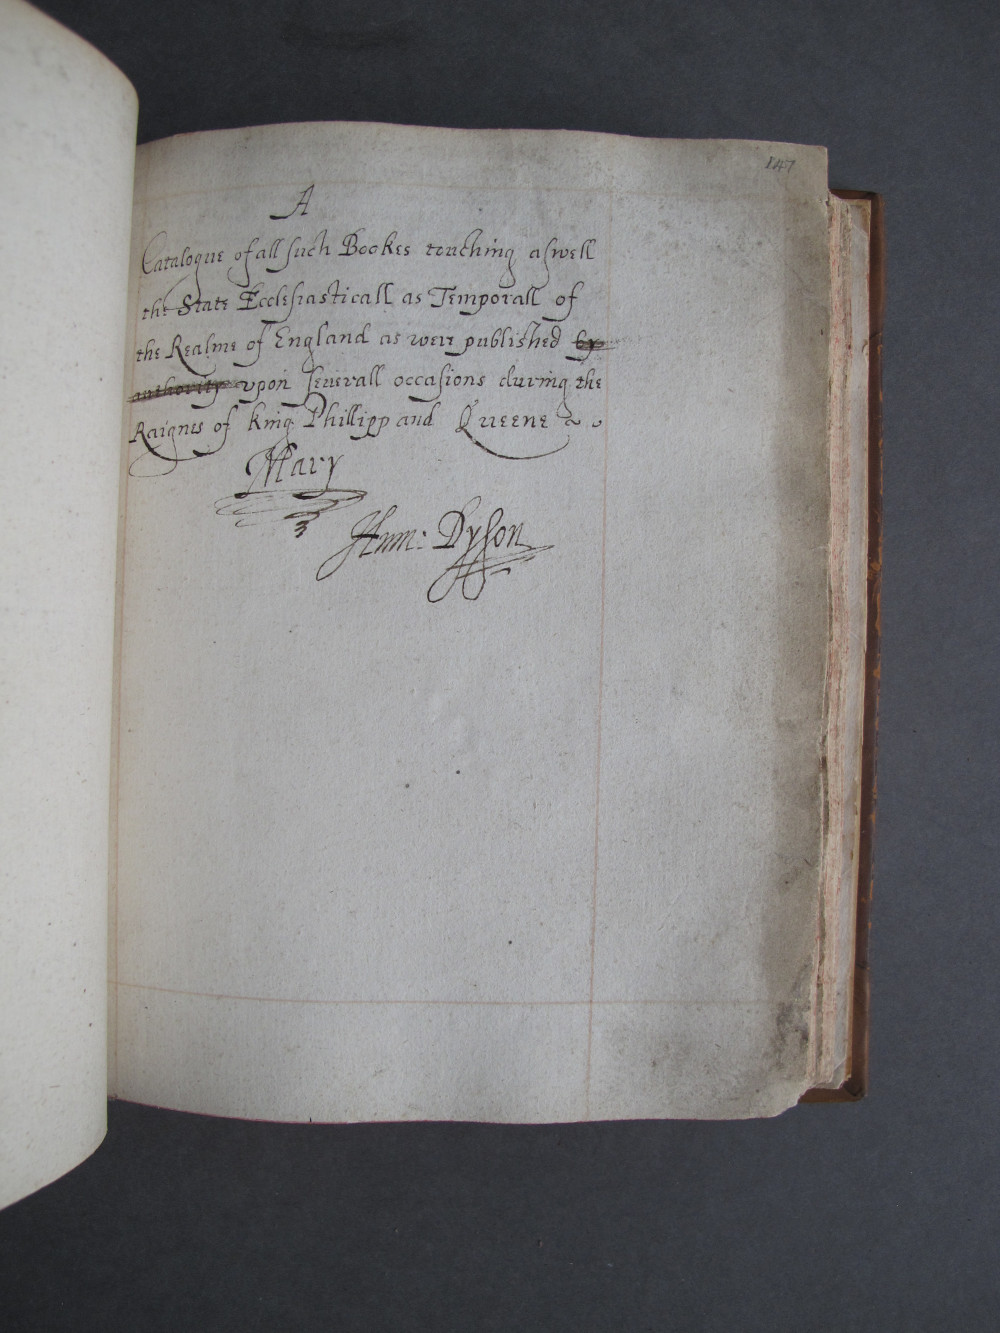 147
A
Catalogue of all such Bookes touching aswell
the State Ecclesiasticall as Temporall of
the Realme of England as were published by
authority vpon seuerall occasions during the
Raignes of king Phillipp and Queene
Mary
Hum: Dyson